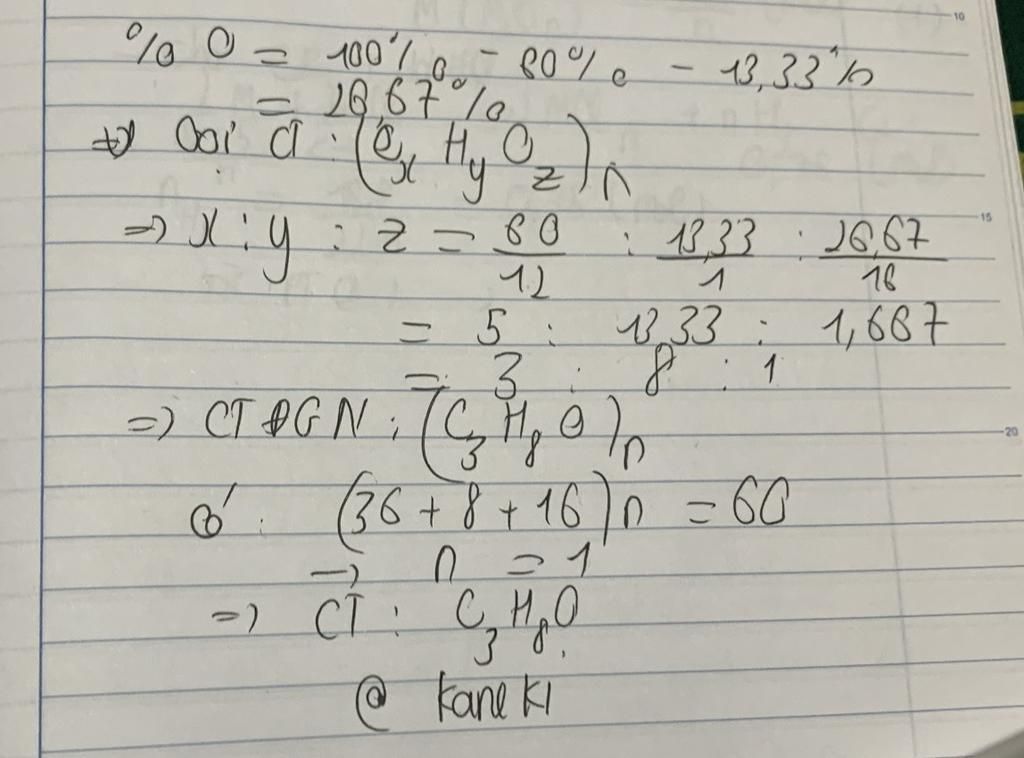 % O = 100% - 60% - 13,33%
= 26,67%
=> Gọi CT : (CxHyOz)n
=> x : y : z = 60/12 : 13,33/1 : 26,67/16
= 5 : 13,33 : 1,667
= 3 : 8 : 1
=> CTĐGN : (C3H8O)n
có : (36 + 8 + 16)n = 60
→ n = 1
=> CT : C3H8O.
@ kaneki
10
15
20